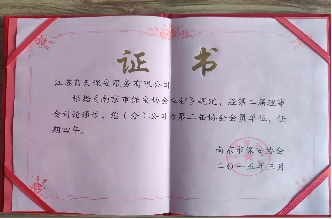 证 书
江苏 天保安服务有限公司
根据《南京市保安协会 》规定，经第二届理事
会讨论通过，您（公）公司为第二届协会会员单位，任
期四年。
南京市保安协会
二〇一五年三月